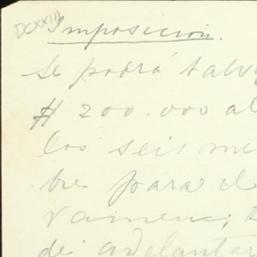 DCXXIII
Imposición.
Se podrá salv
$ 200.000 al
los seis me
bre para el
vamen;
de adelantar